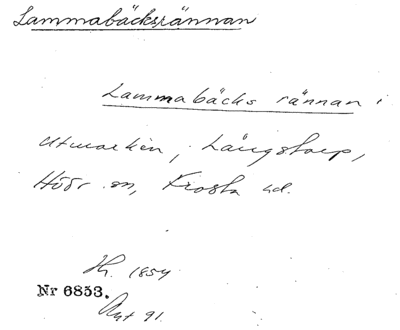 Lammabäcksrännan
Lammabäcks rännan i
utmarken, Långstorp,
Höör sn, Frosta hd.
Hy. 1854
Nr 6853.
Akt 91.